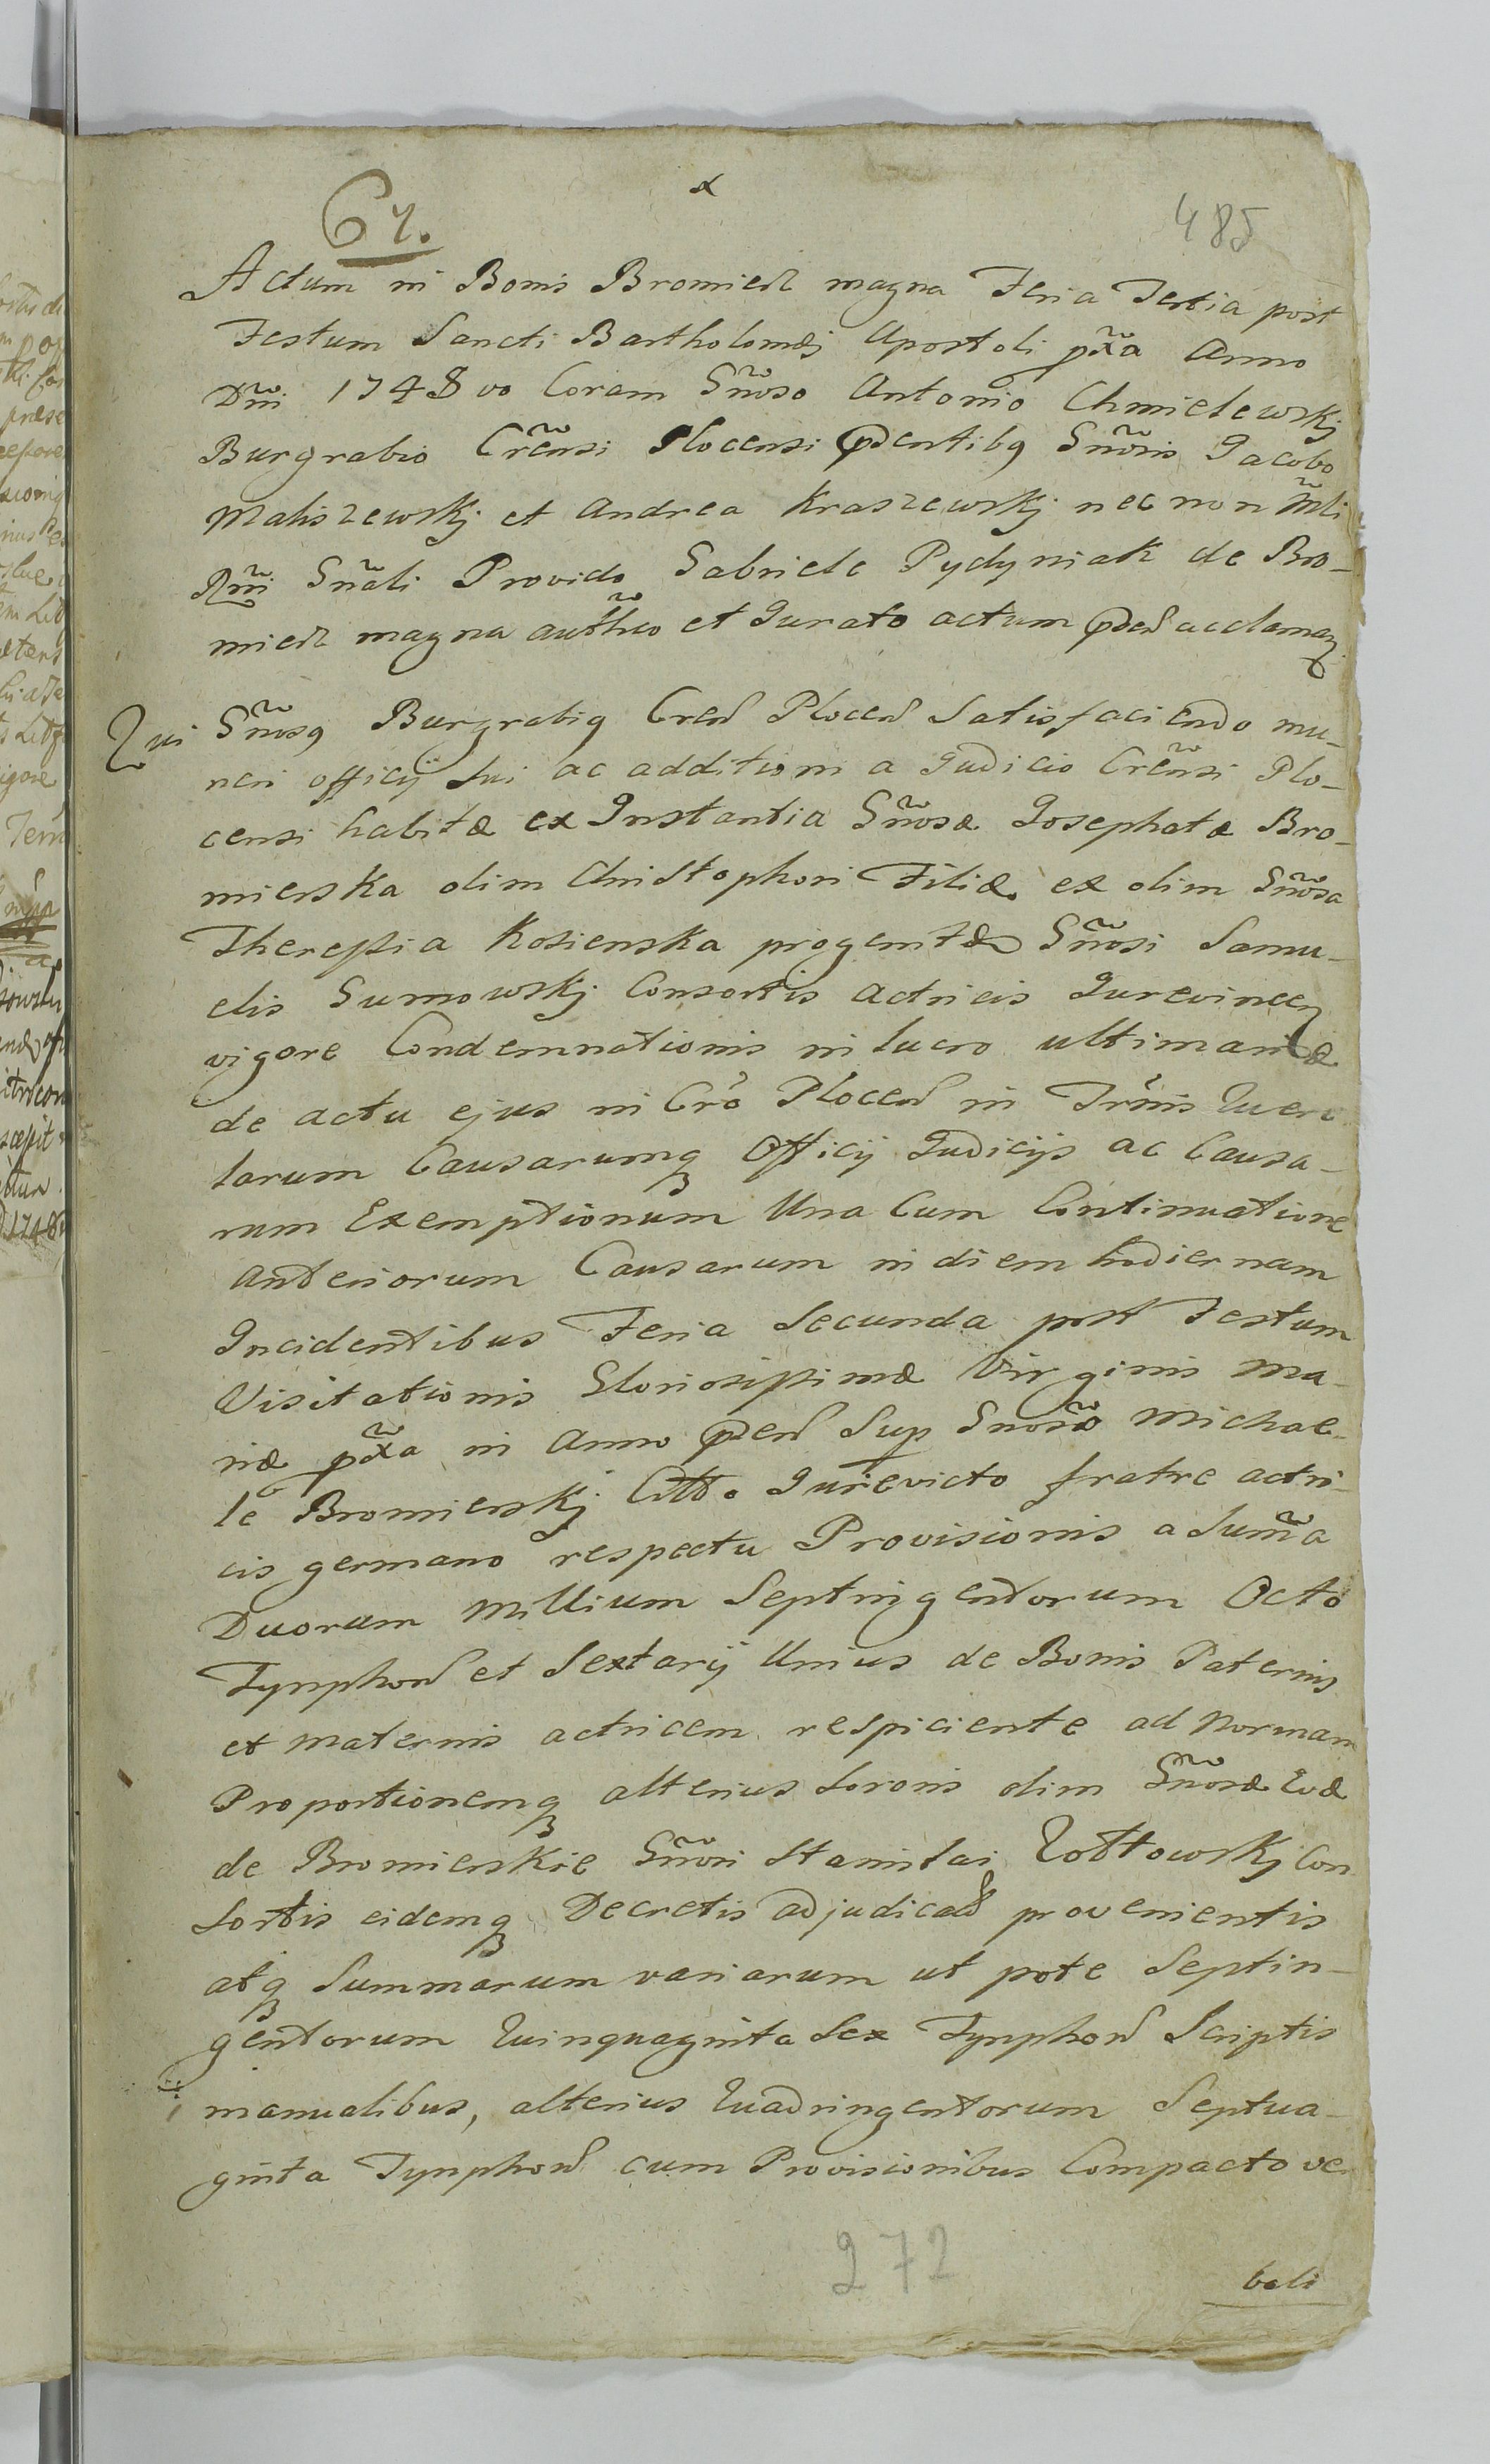 x
67.
485
Actum in Bonis Bromierz magna Feria Tertia post
Festum Sancti Bartholomæi Apostoli pxĩa Anno
Dñi 1748vo Coram Gñoso Antonio Chmielewskj
Burgrabio Crẽnsi Plocensi pdentibq Gñõsis Jacobo
Maliszewskj et Andrea Kraszewskj nec non Mli
Rñi Gñali Provido Gabriele Pydyniak de Bro-
mierz magna authco et Jurato actum pden acclaman
Qui Gñosq Burgrabiq Cren Plocen Satisfaciendo mu-
neri officij sui ac additioni a Judicio Crẽnsi Plo-
censi habitæ ex Instantia Gñosæ Josephatæ Bro-
mierska olim Christophori Filiæ ex olim Gñosa
Theressia Kosienska progenitæ Gñosi Samu-
elis Gumowskj Consortis actricis Jurevincen
vigore Condemnationis in lucro ultimariæ
de actu ejus in Cro Plocen in Trinis Quere
larum Causarumq Officij Judicijs ac Causa-
rum Exemptionum Una Cum Continuatione
Anteriorum Causarum in diem hodiernam
Incidentibus Feria Secunda post Festum
Visitationis Gloriosissimæ Virginis Ma-
riæ pxĩa in Anno pden Sup Gnoso Michae-
le Bromierskj Citto Jurevicto fratre actri-
cis germano respectu Provisionis a Sum̃a
Duorum Millium Septingentorum Octo
Tynphon et Sextarij Unius de Bonis Paternis
et Maternis actricem respiciente ad Normam
Proportionemq alterius Sororis olim Gñosæ Evæ
de Bromierskie Gñosi Stanislai Zottowskj Con
Sortis eidemq Decretis adjudicat provenientis
atq Summarum variarum ut pote Septin-
gentorum Quinquaginta Sex Tynphon Scriptis
manualibus, alterius Quadringentorum Septua-
ginta Tynphon cum Provisionibus Compacto ver
bali
272